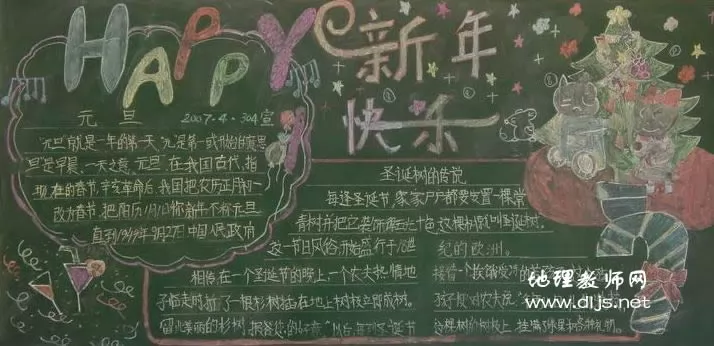 HAPPY
新年
快乐
元旦 2007·4·304宣
"元旦"就是一年的第一天"元"是第一或开始的意思
"旦"是早晨、一天之意。元旦、在我国古代,指
现在的春节,辛亥革命后,我国把农历正月初一
改为春节,把阳历1月1日称新年不称元旦
直到1949年9月27日中国人民政府
圣诞树的传说
每逢圣诞节,家家户户都要安置一棵常
青树并把它装饰得五光十色,这棵树就叫圣诞树。
这一节日风俗,开始盛行于18世纪的欧洲。
相传,在一个圣诞节的晚上,一个农夫热情地接待一个
孩子临走时 插在地上树枝立即成树。 孩子 对农夫说
留此美丽的杉树 报答 圣诞节 这棵树的树枝上,挂满了
地理教师网
www.dljs.net